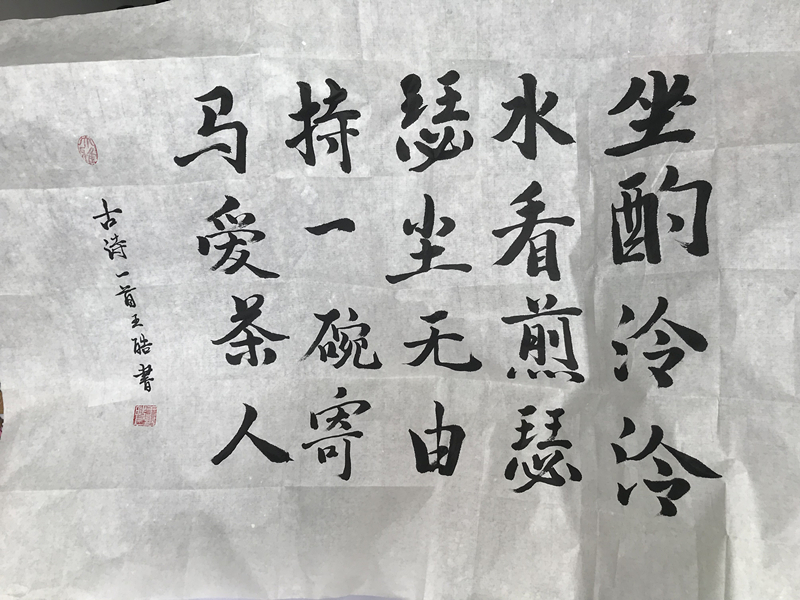 坐酌泠泠
水看煎瑟
瑟尘无由
持一碗寄
马爱茶人
古诗一首王书